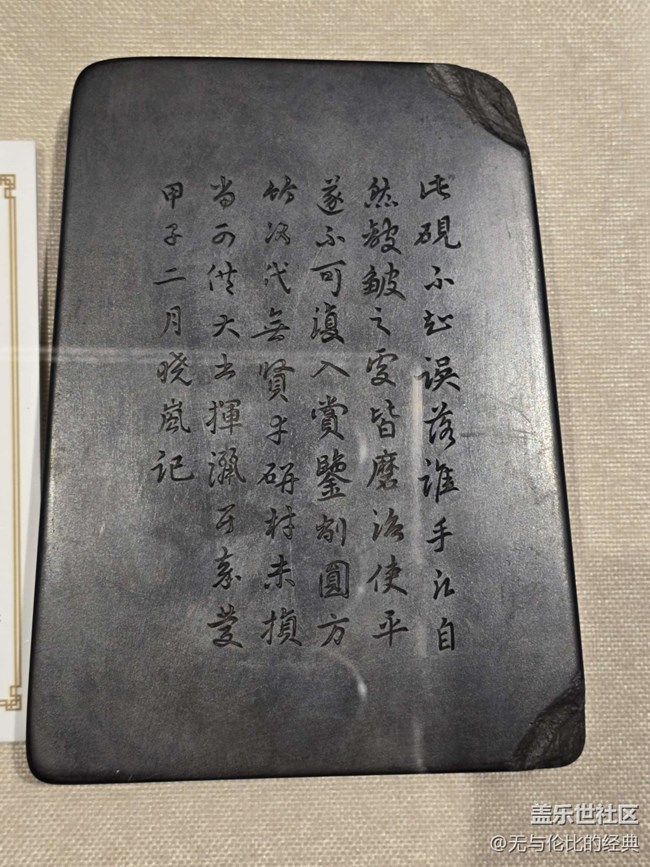 此硯不知誤落誰手凡自
然皴皺之處皆磨治使平
遂不可復入賞鑒刓圓方
竹何代無賢幸研材未損
尚可供大書揮灑耳嘉慶
甲子二月曉嵐記
盖乐世社区
@无与伦比的经典